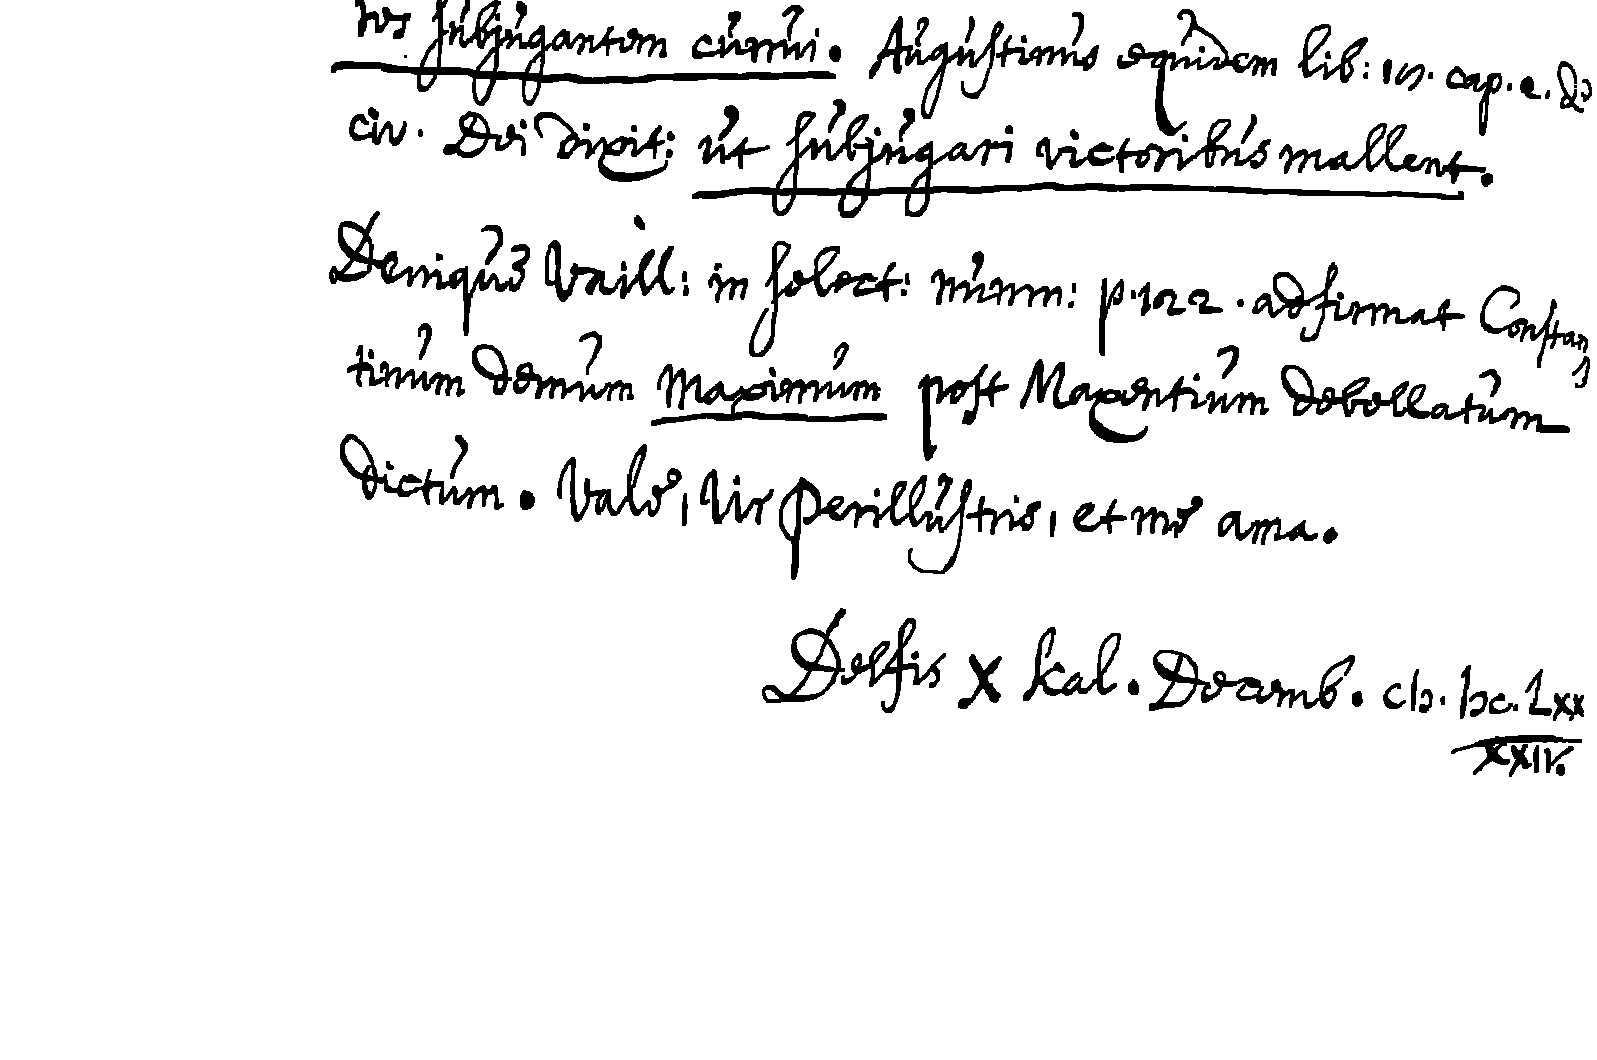 tos subjugantem currui. Augustinus equidem lib: 19. cap. 2. de
civ. Dei dixit: ut subjugari victoribus mallent.
Denique Vaill: in select: num: p. 122. adfirmat Constan
tinum demum Maximum post Maxentium debellatum
dictum. Vale, Vir perillustris, et me ama.
Delfis X kal. Decemb. cIↄ. Iↄc. Lxx
xxIV.